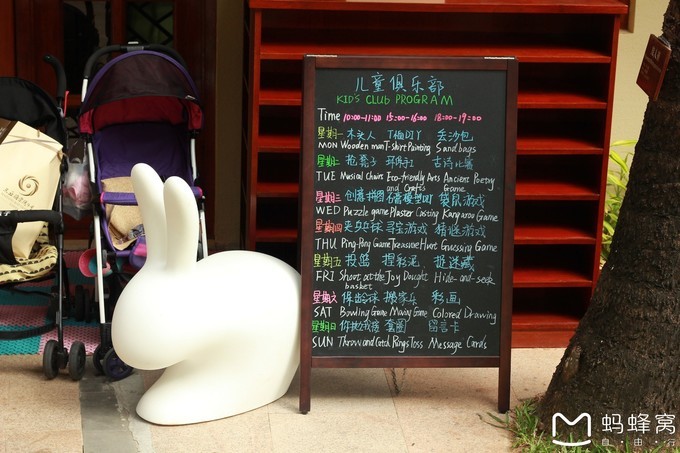 儿童俱乐部
KID'S CLUB PROGRAM
Time 10:00-11:00 15:00-16:00 18:00-19:00
星期一 木头人 T恤DIY 丢沙包
MON Wooden man T-shirt Painting Sandbags
星期二 抢凳子 环保手工 古诗比赛
TUE Musical Chairs Eco-friendly Arts Ancient Poetry
and Crafts Game
星期三 创意拼图 石膏模型DIY 袋鼠游戏
WED Puzzle game Plaster Casting Kangaroo Game
星期四 乒乓球 寻宝游戏 猜谜游戏
THU Ping-Pong Game Treasure Hunt Guessing Game
星期五 投篮 捏彩泥 捉迷藏
FRI Shoot at the Joy Dought Hide-and-seek
basket
星期六 保龄球 搬家乐 彩画
SAT Bowling Game Moving Game Colored Drawing
星期日 你抛我接 套圈 留言卡
SUN Throw and Catch Rings Toss Message Cards
蚂蜂窝
自·由·行